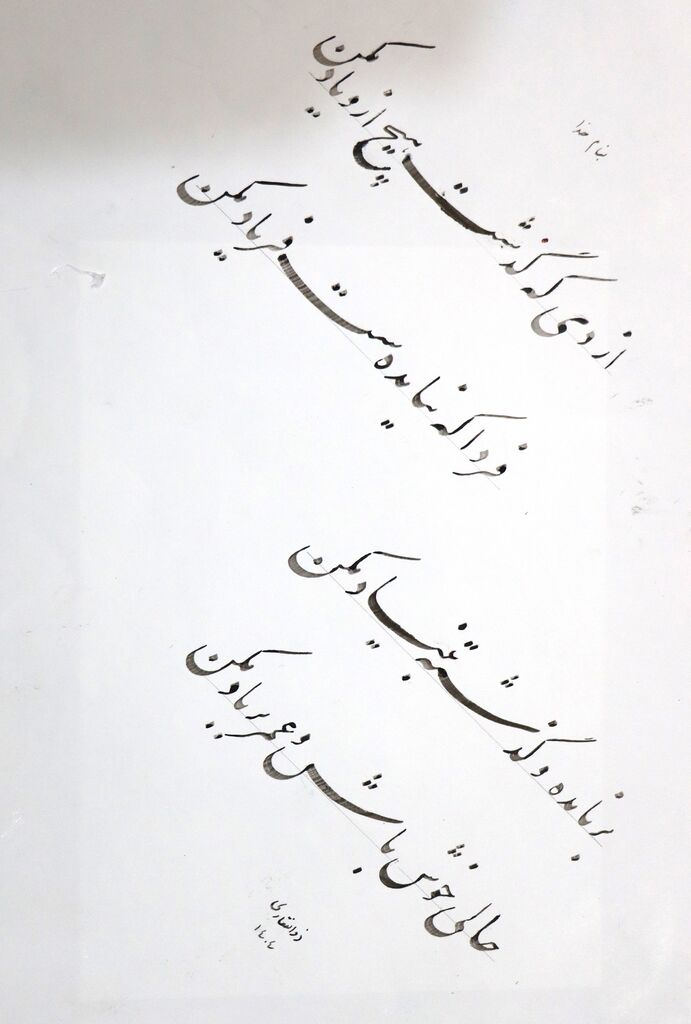 بنام خدا
از دی که گذشت هیچ ازو یاد مکن
فردا که نیامده ست فریاد مکن
بر نامده و گذشته بنیاد مکن
حالی خوش باش و عمر بر باد مکن
ذوالفقاری